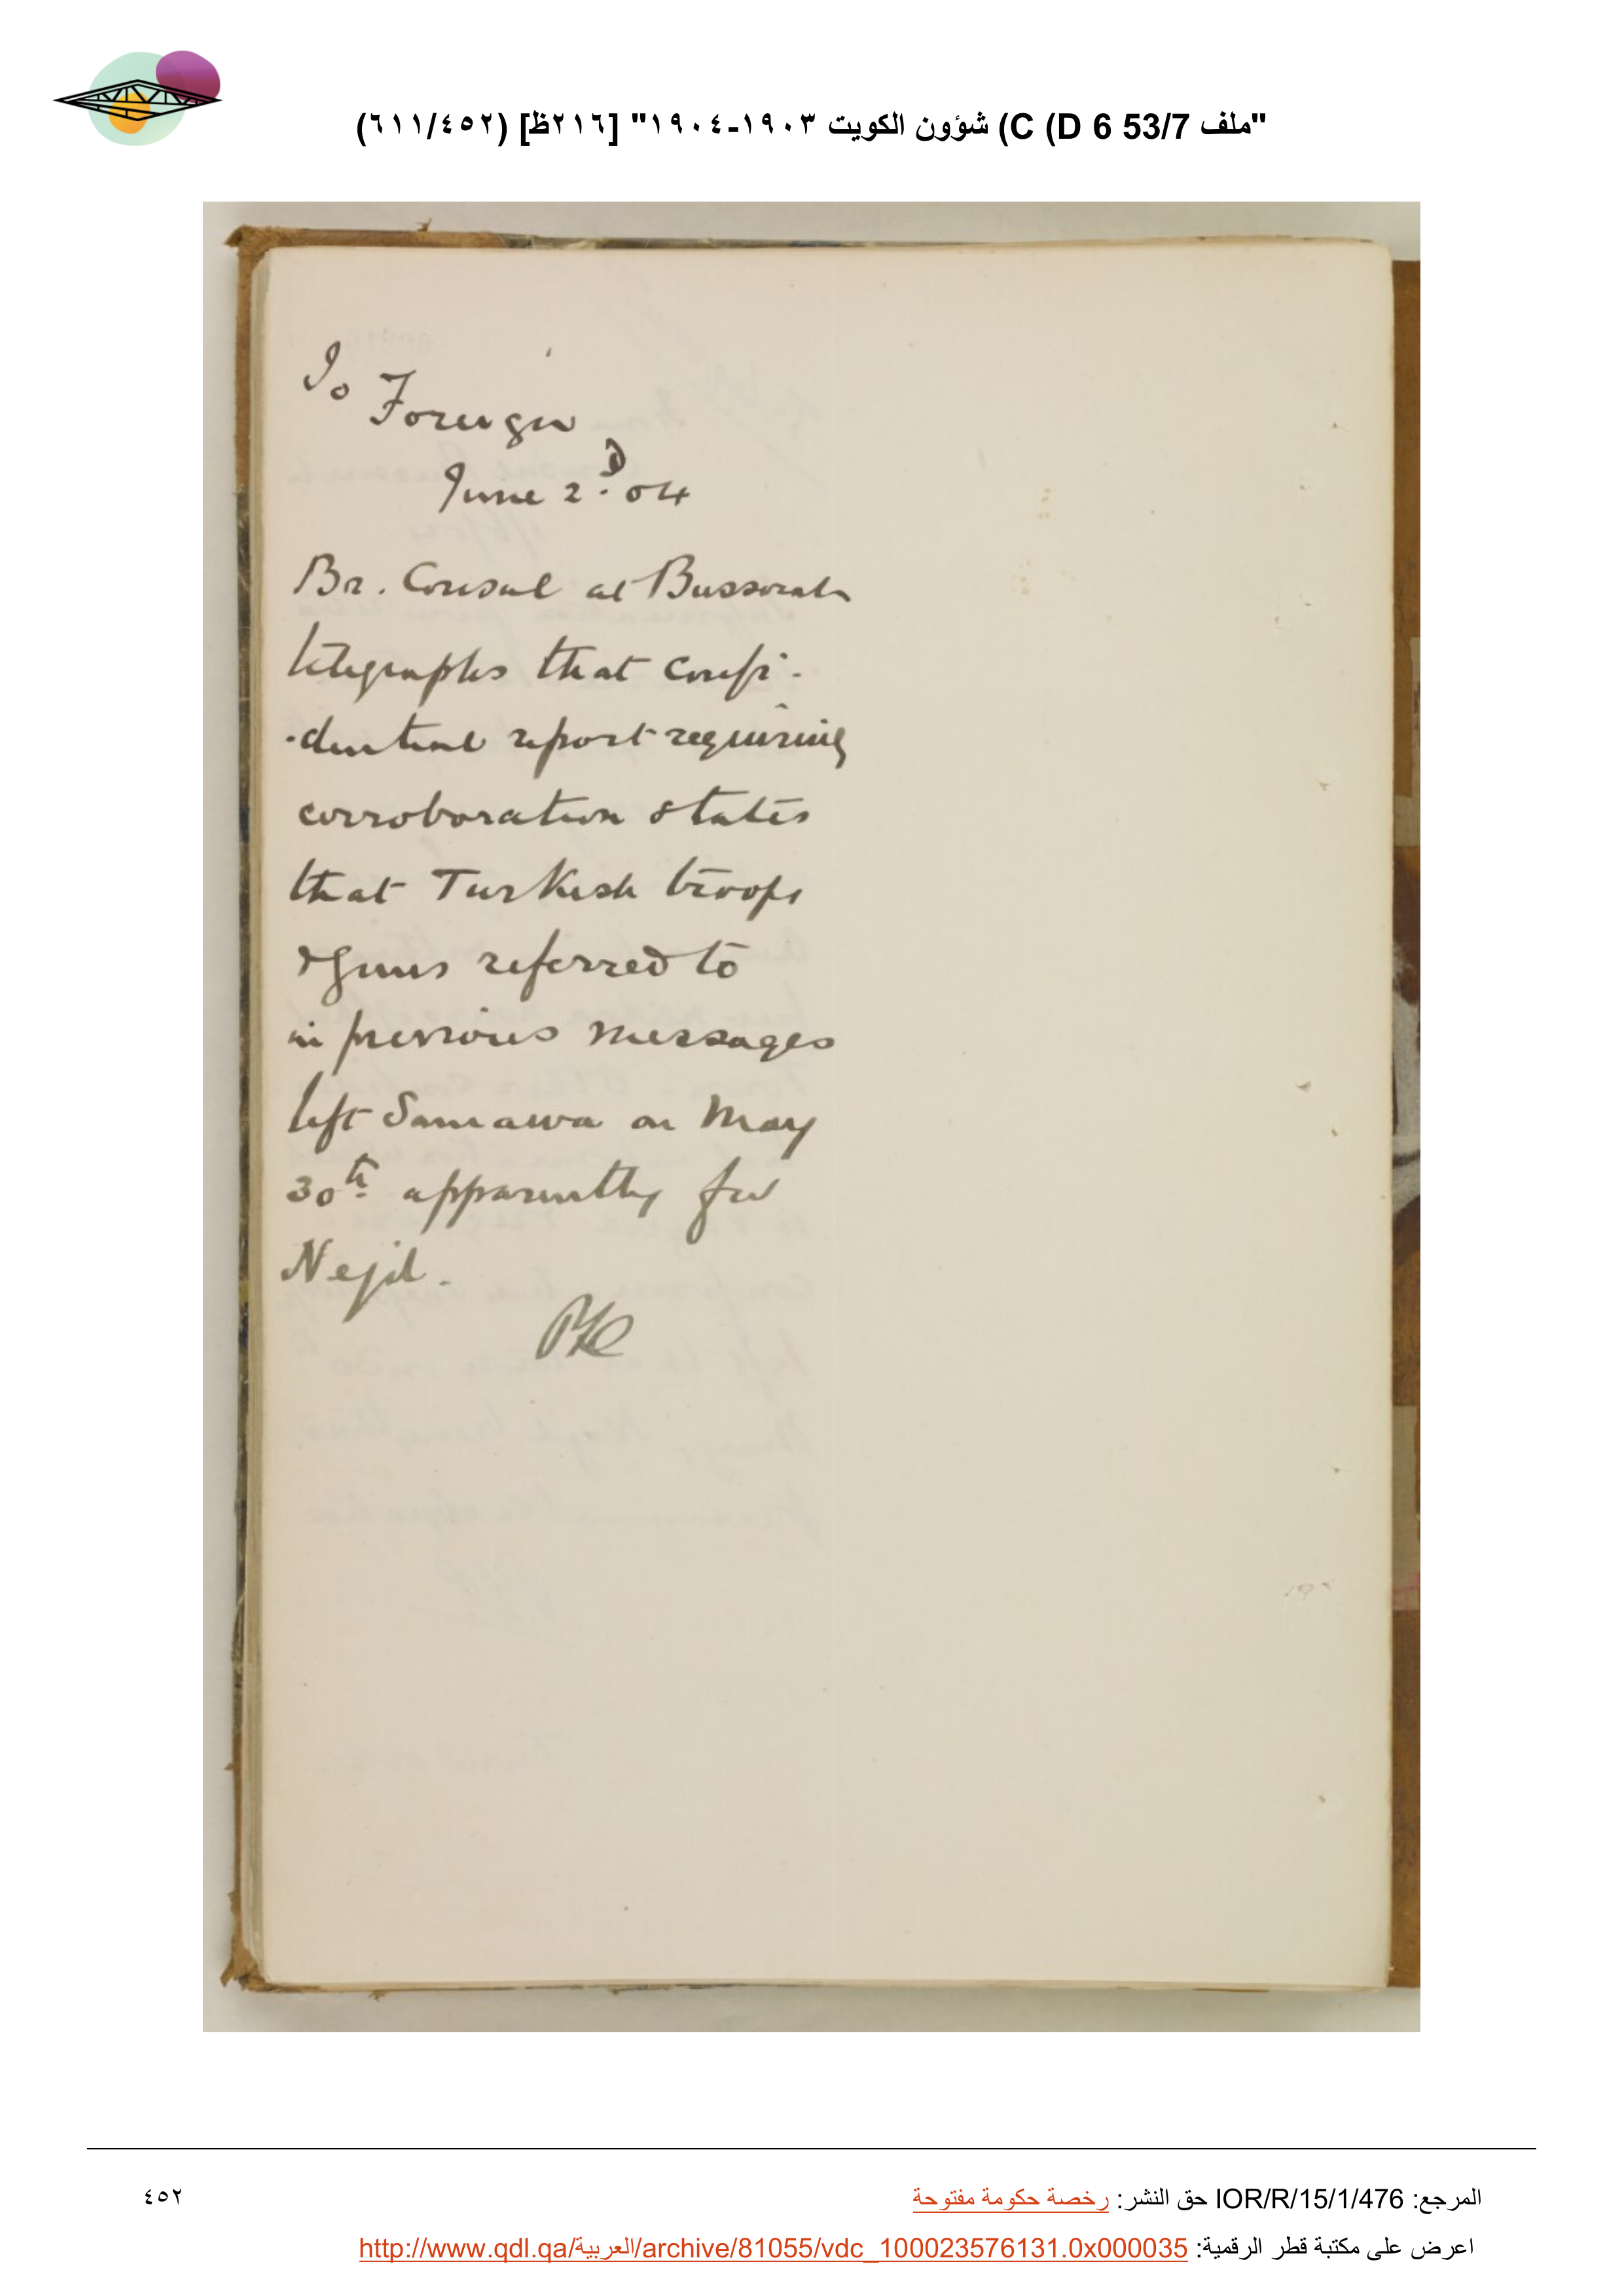 "ملف 53/7 C (D 6) شؤون الكويت ١٩٠٣-١٩٠٤" [٢١٦ظ] (٦١١/٤٥٢)
To
Foreign
June 2d. 04
Br. Consul at Bussorah
telegraphs that confi-
-dential report requiring
corroboration states
that Turkish troops
& guns referred to
in previous messages
left Samawa on May
30th apparently for
Nejd.
PZC
المرجع: IOR/R/15/1/476 حق النشر: رخصة حكومة مفتوحة
٤٥٢
اعرض على مكتبة قطر الرقمية: http://www.qdl.qa/العربية/archive/81055/vdc_100023576131.0x000035